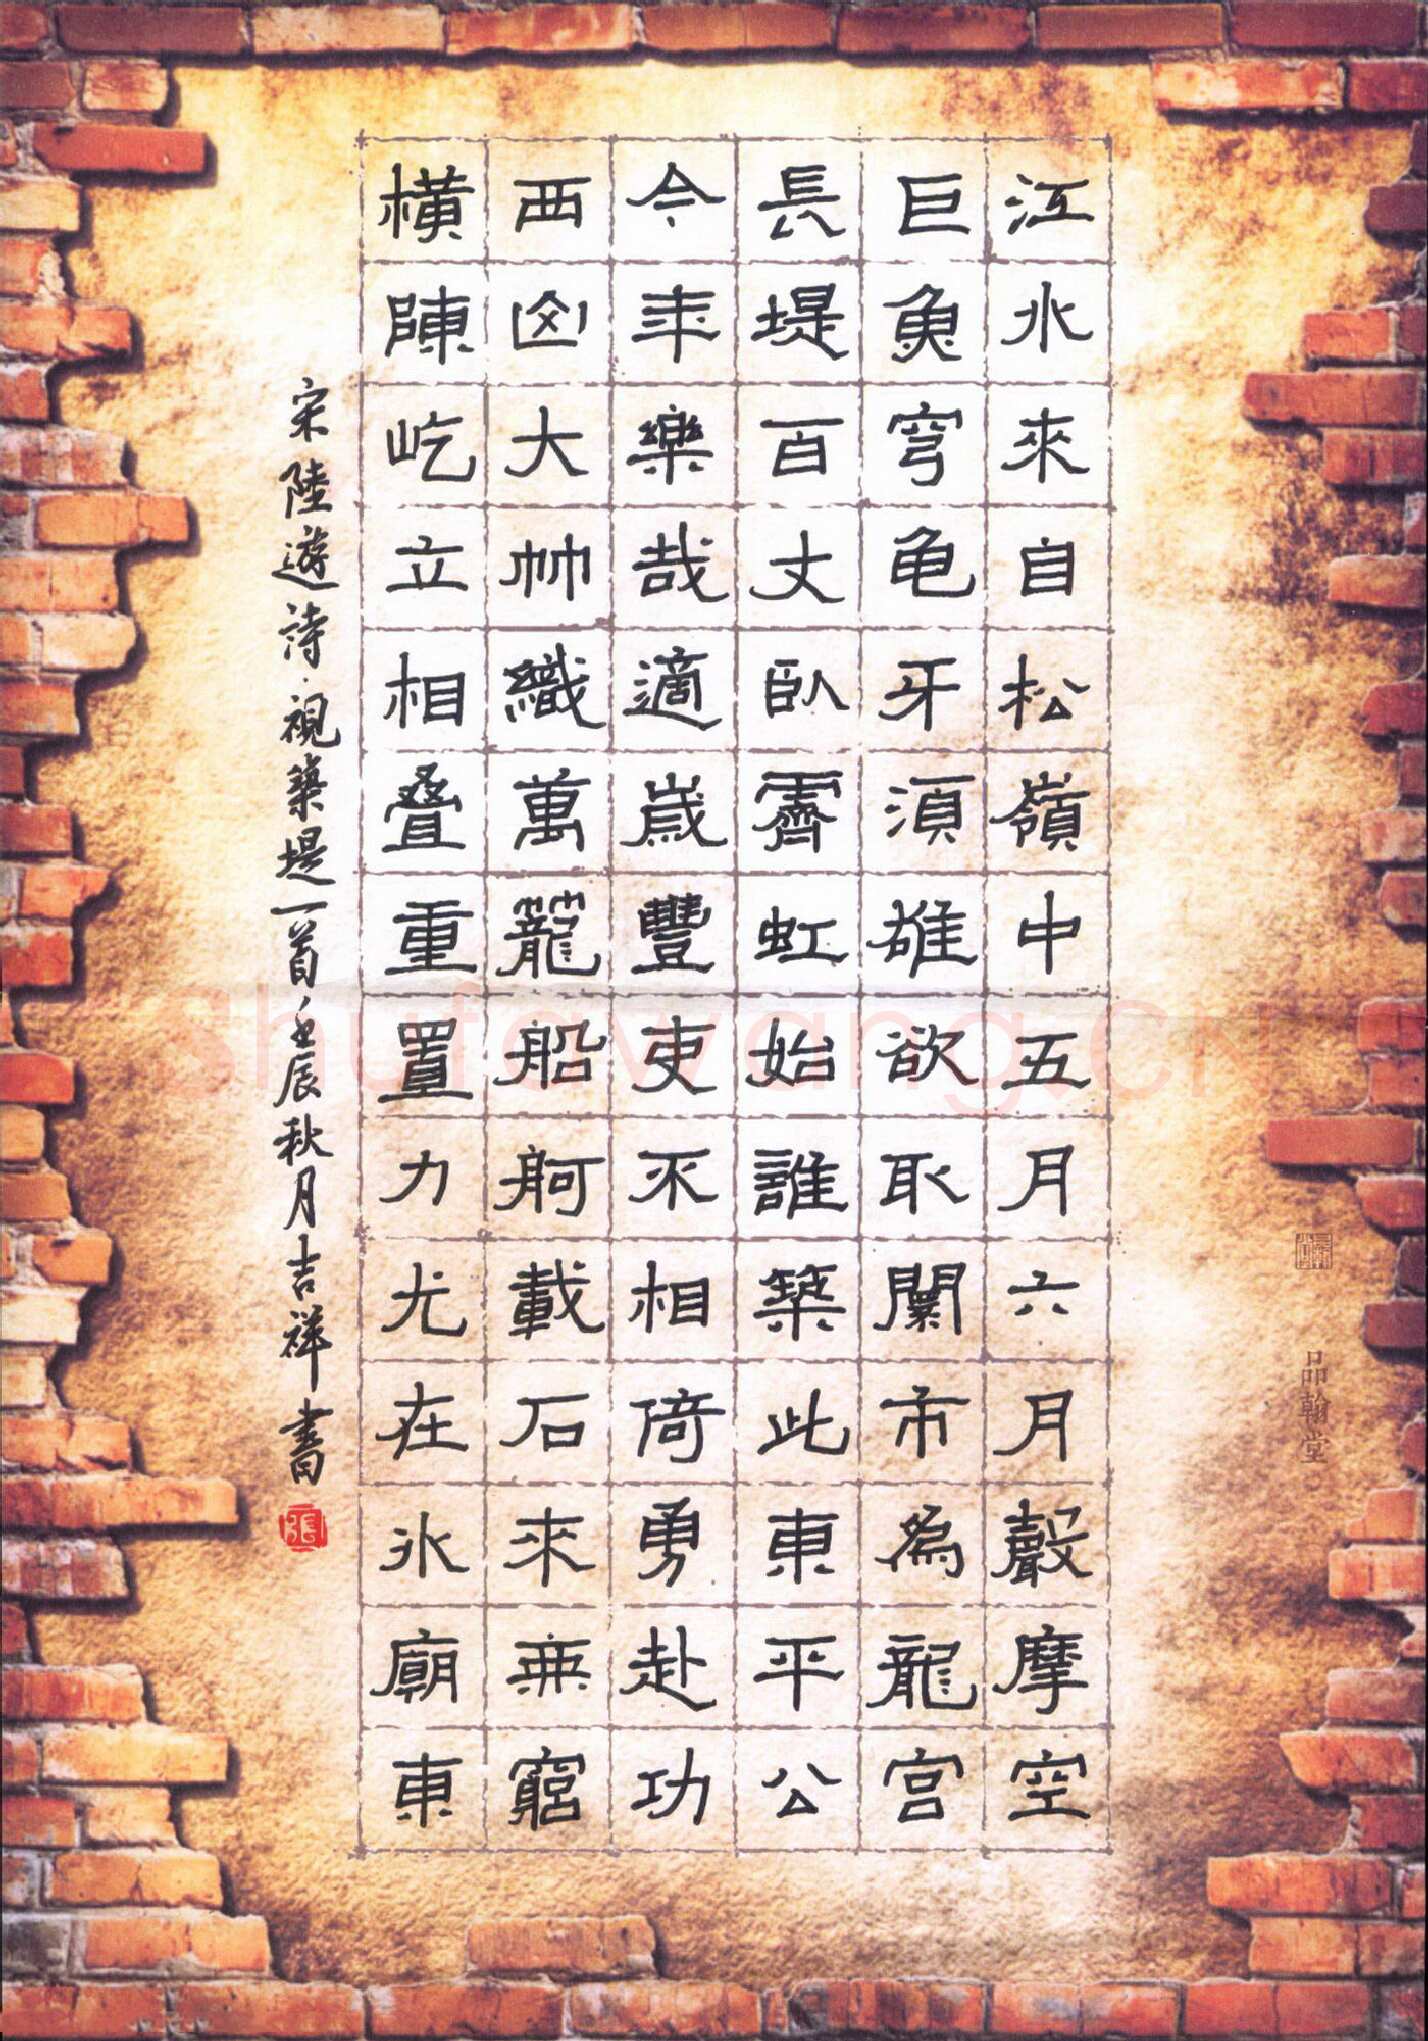 江水來自松嶺中五月六月聲摩空
巨魚穹龜牙須雄欲取闤市為龍宮
長堤百丈臥霽虹始誰築此東平公
今年樂哉適歲豐吏不相倚勇赴功
西山大竹織萬籠船舸載石來無窮
橫陳屹立相疊重置力尤在水廟東
宋陸遊詩視築堤一首壬辰秋月吉祥書
張
品翰堂
shufawang.cn